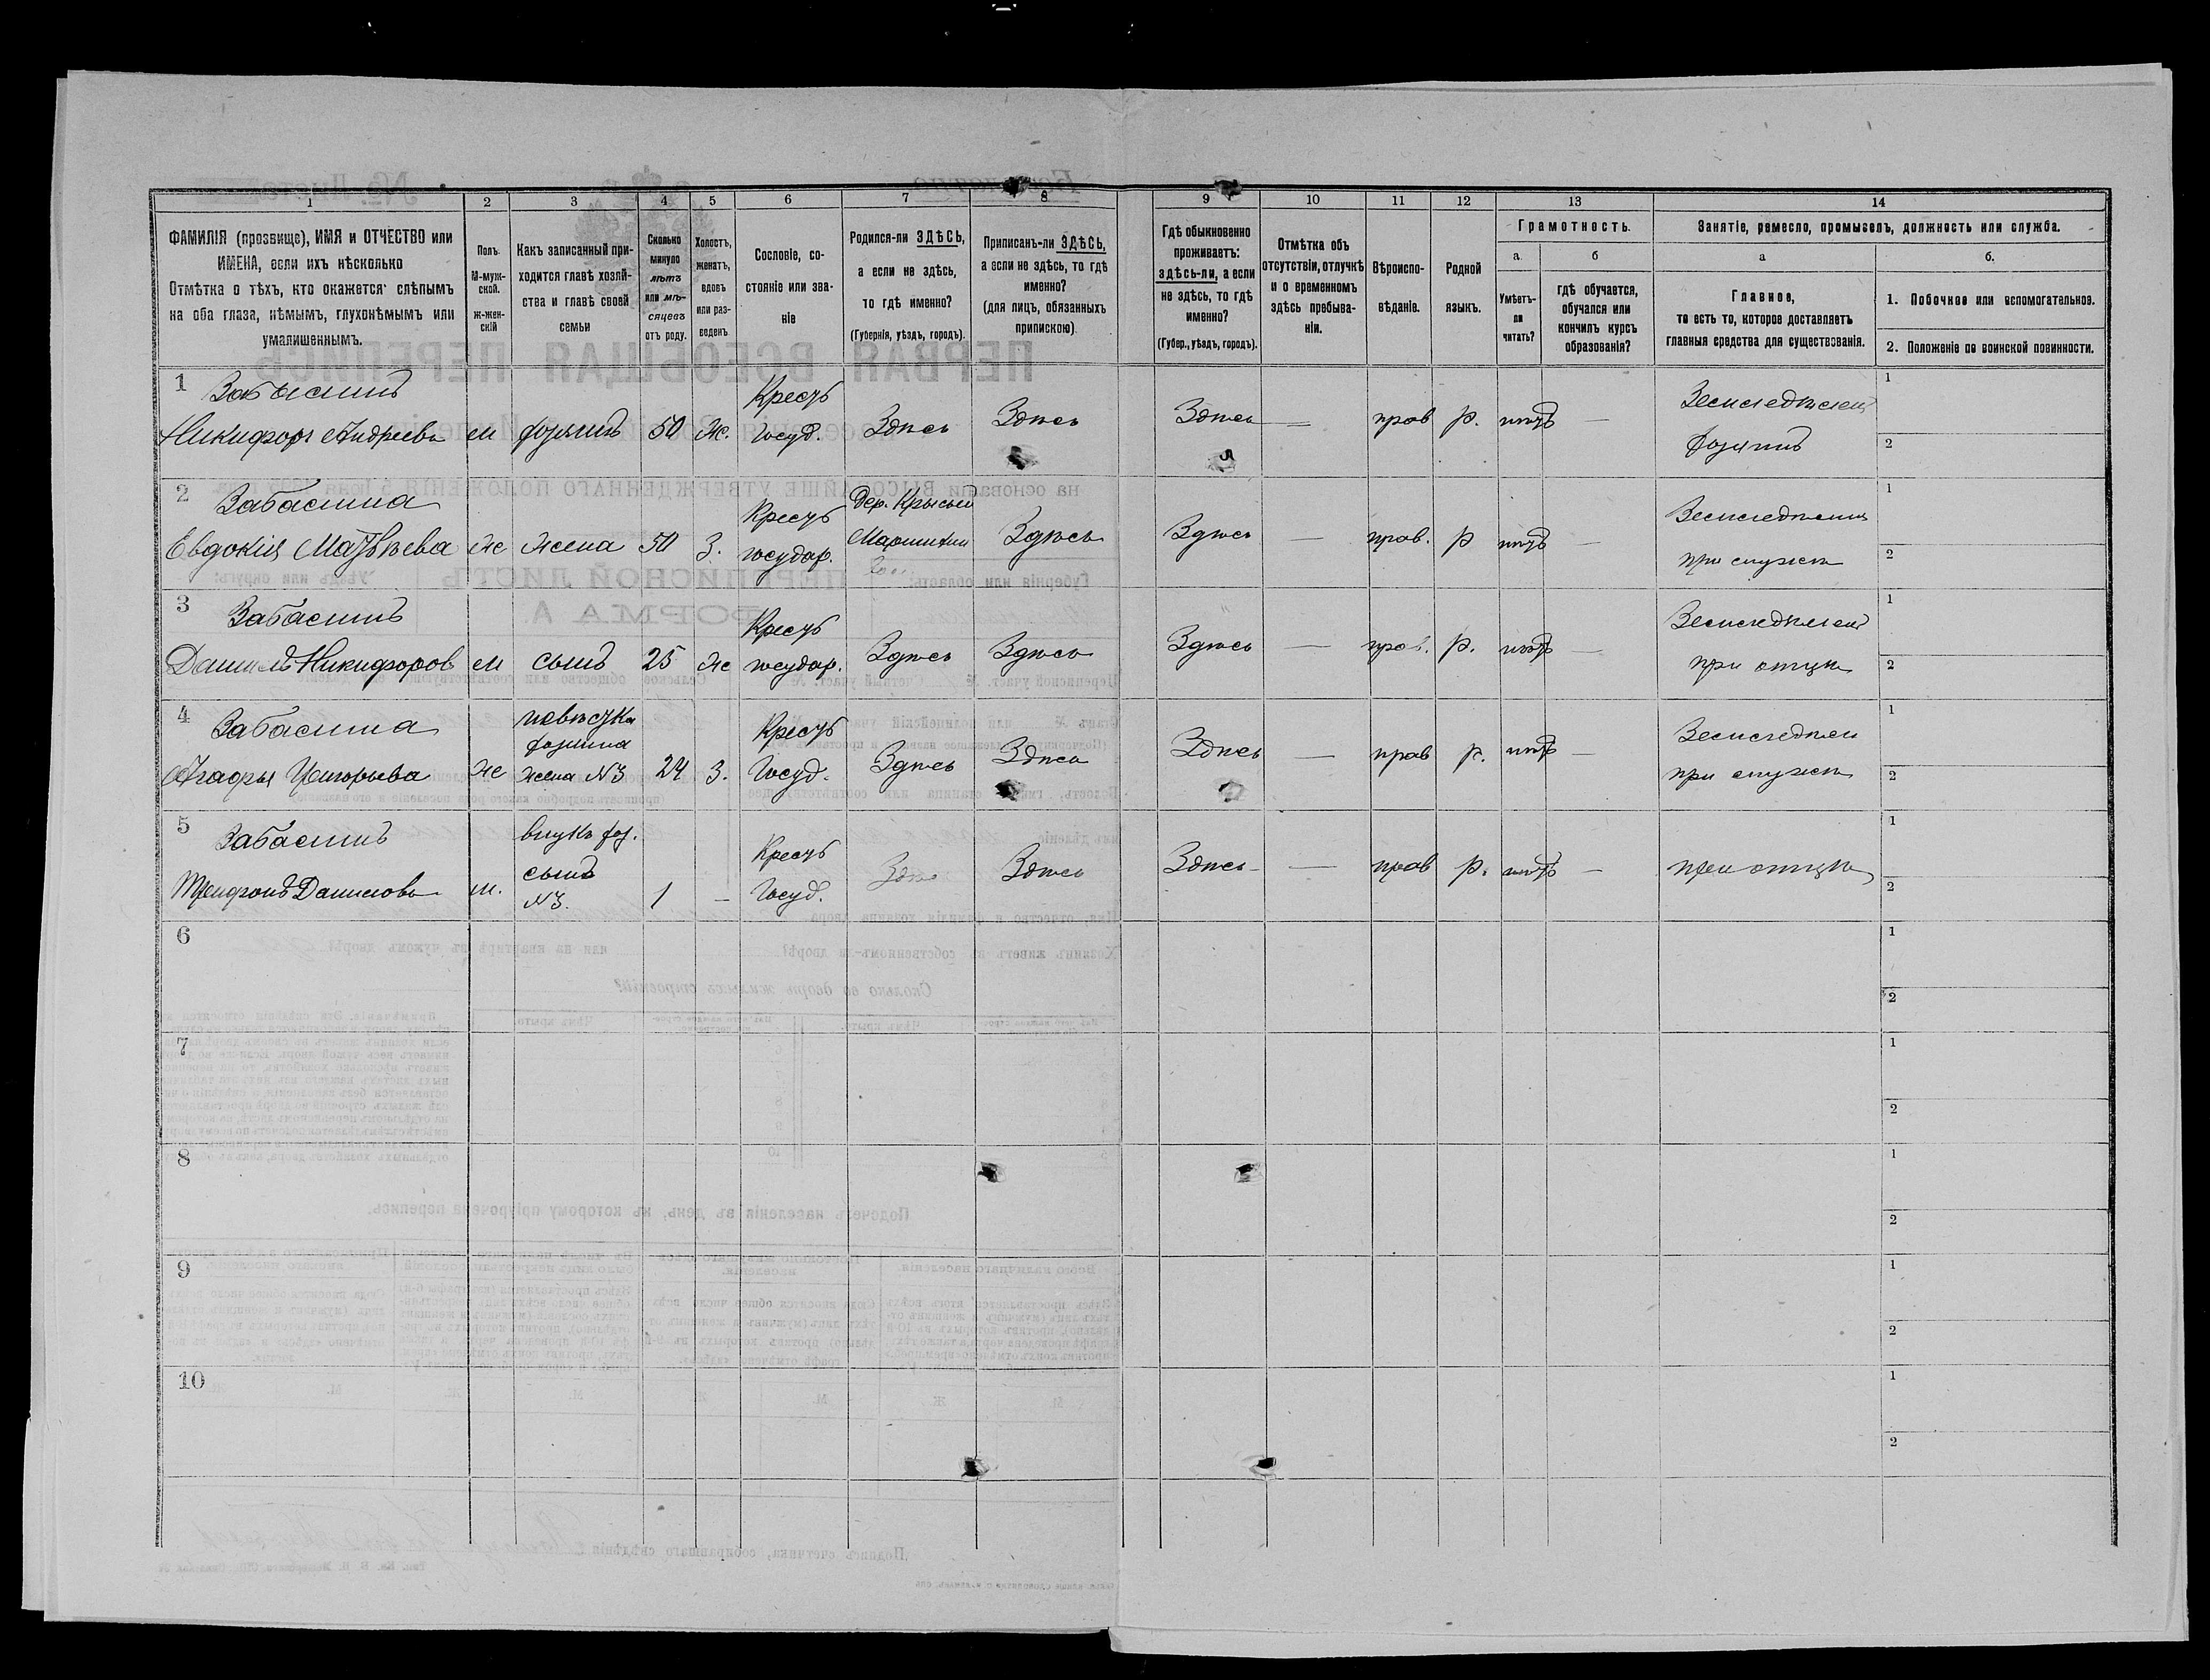 1 2 3 4 5 6 7 8 9 10 11 12 13 14
ФАМИЛІЯ (прозвище), ИМЯ и ОТЧЕСТВО или
ИМЕНА, если ихъ нѣсколько
Отмѣтка о тѣхъ, кто окажется слѣпымъ
на оба глаза, нѣмымъ, глухонѣмымъ или
умалишеннымъ.
Полъ.
М-муж-
ской.
ж-жен-
скій
Какъ записанный при-
ходится главѣ хозяй-
ства и главѣ своей
семьи
Сколько
минуло
лѣтъ
или мѣ-
сяцевъ
отъ роду.
Холостъ,
женатъ,
вдовъ
или раз-
веденъ
Сословіе, со-
стояніе или зва-
ніе
Родился-ли ЗДѢСЬ,
а если не здѣсь,
то гдѣ именно?
(Губернія, уѣздъ, городъ).
Приписанъ-ли ЗДѢСЬ,
а если не здѣсь, то гдѣ
именно?
(для лицъ, обязанныхъ
припискою)
Гдѣ обыкновенно
проживаетъ:
здѣсь-ли, а если
не здѣсь, то гдѣ
именно?
(Губер., уѣздъ, городъ).
Отмѣтка объ
отсутствіи, отлучкѣ
и о временномъ
здѣсь пребыва-
ніи.
Вѣроиспо-
вѣданіе.
Родной
языкъ.
Грамотность.
а.
Умѣетъ-
ли
читать?
б
гдѣ обучается,
обучался или
кончилъ курсъ
образованія?
Занятіе, ремесло, промыселъ, должность или служба.
а
Главное,
то есть то, которое доставляетъ
главныя средства для существованія.
б.
1. Побочное или вспомогательное.
2. Положеніе по воинской повинности.
1 Забасинъ
Никифоръ Андреевъ м хозяинъ 50 Ж. Крест Госуд. Здѣсь Здѣсь Здѣсь — прав р. нѣтъ — Земледѣлецъ
хозяинъ
1
2
2 Забасина
Евдокія Матвѣева ж жена 50 З. Крест государ. Дер. Здѣсь Здѣсь — прав. р нѣтъ —
при мужѣ
1
2
3 Забасинъ
Данилъ Никифоров м сынъ 25 ж Крест государ. Здѣсь Здѣсь Здѣсь — прав. р. нѣтъ — Земледѣлецъ
при отцѣ
1
2
4 Забасина
невѣстка
хозяина
жена №3 ж 24 З. Крест Госуд. Здѣсь Здѣсь Здѣсь — прав р. нѣтъ —
при мужѣ
1
2
5 Забасинъ
Трифонъ Даниловъ м. внукъ хоз.
сынъ
№3. 1 — Крест Госуд. Здѣсь Здѣсь — прав р. нѣтъ — при отцѣ
1
2
6
1
2
7
1
2
8
1
2
9
1
2
10
1
2